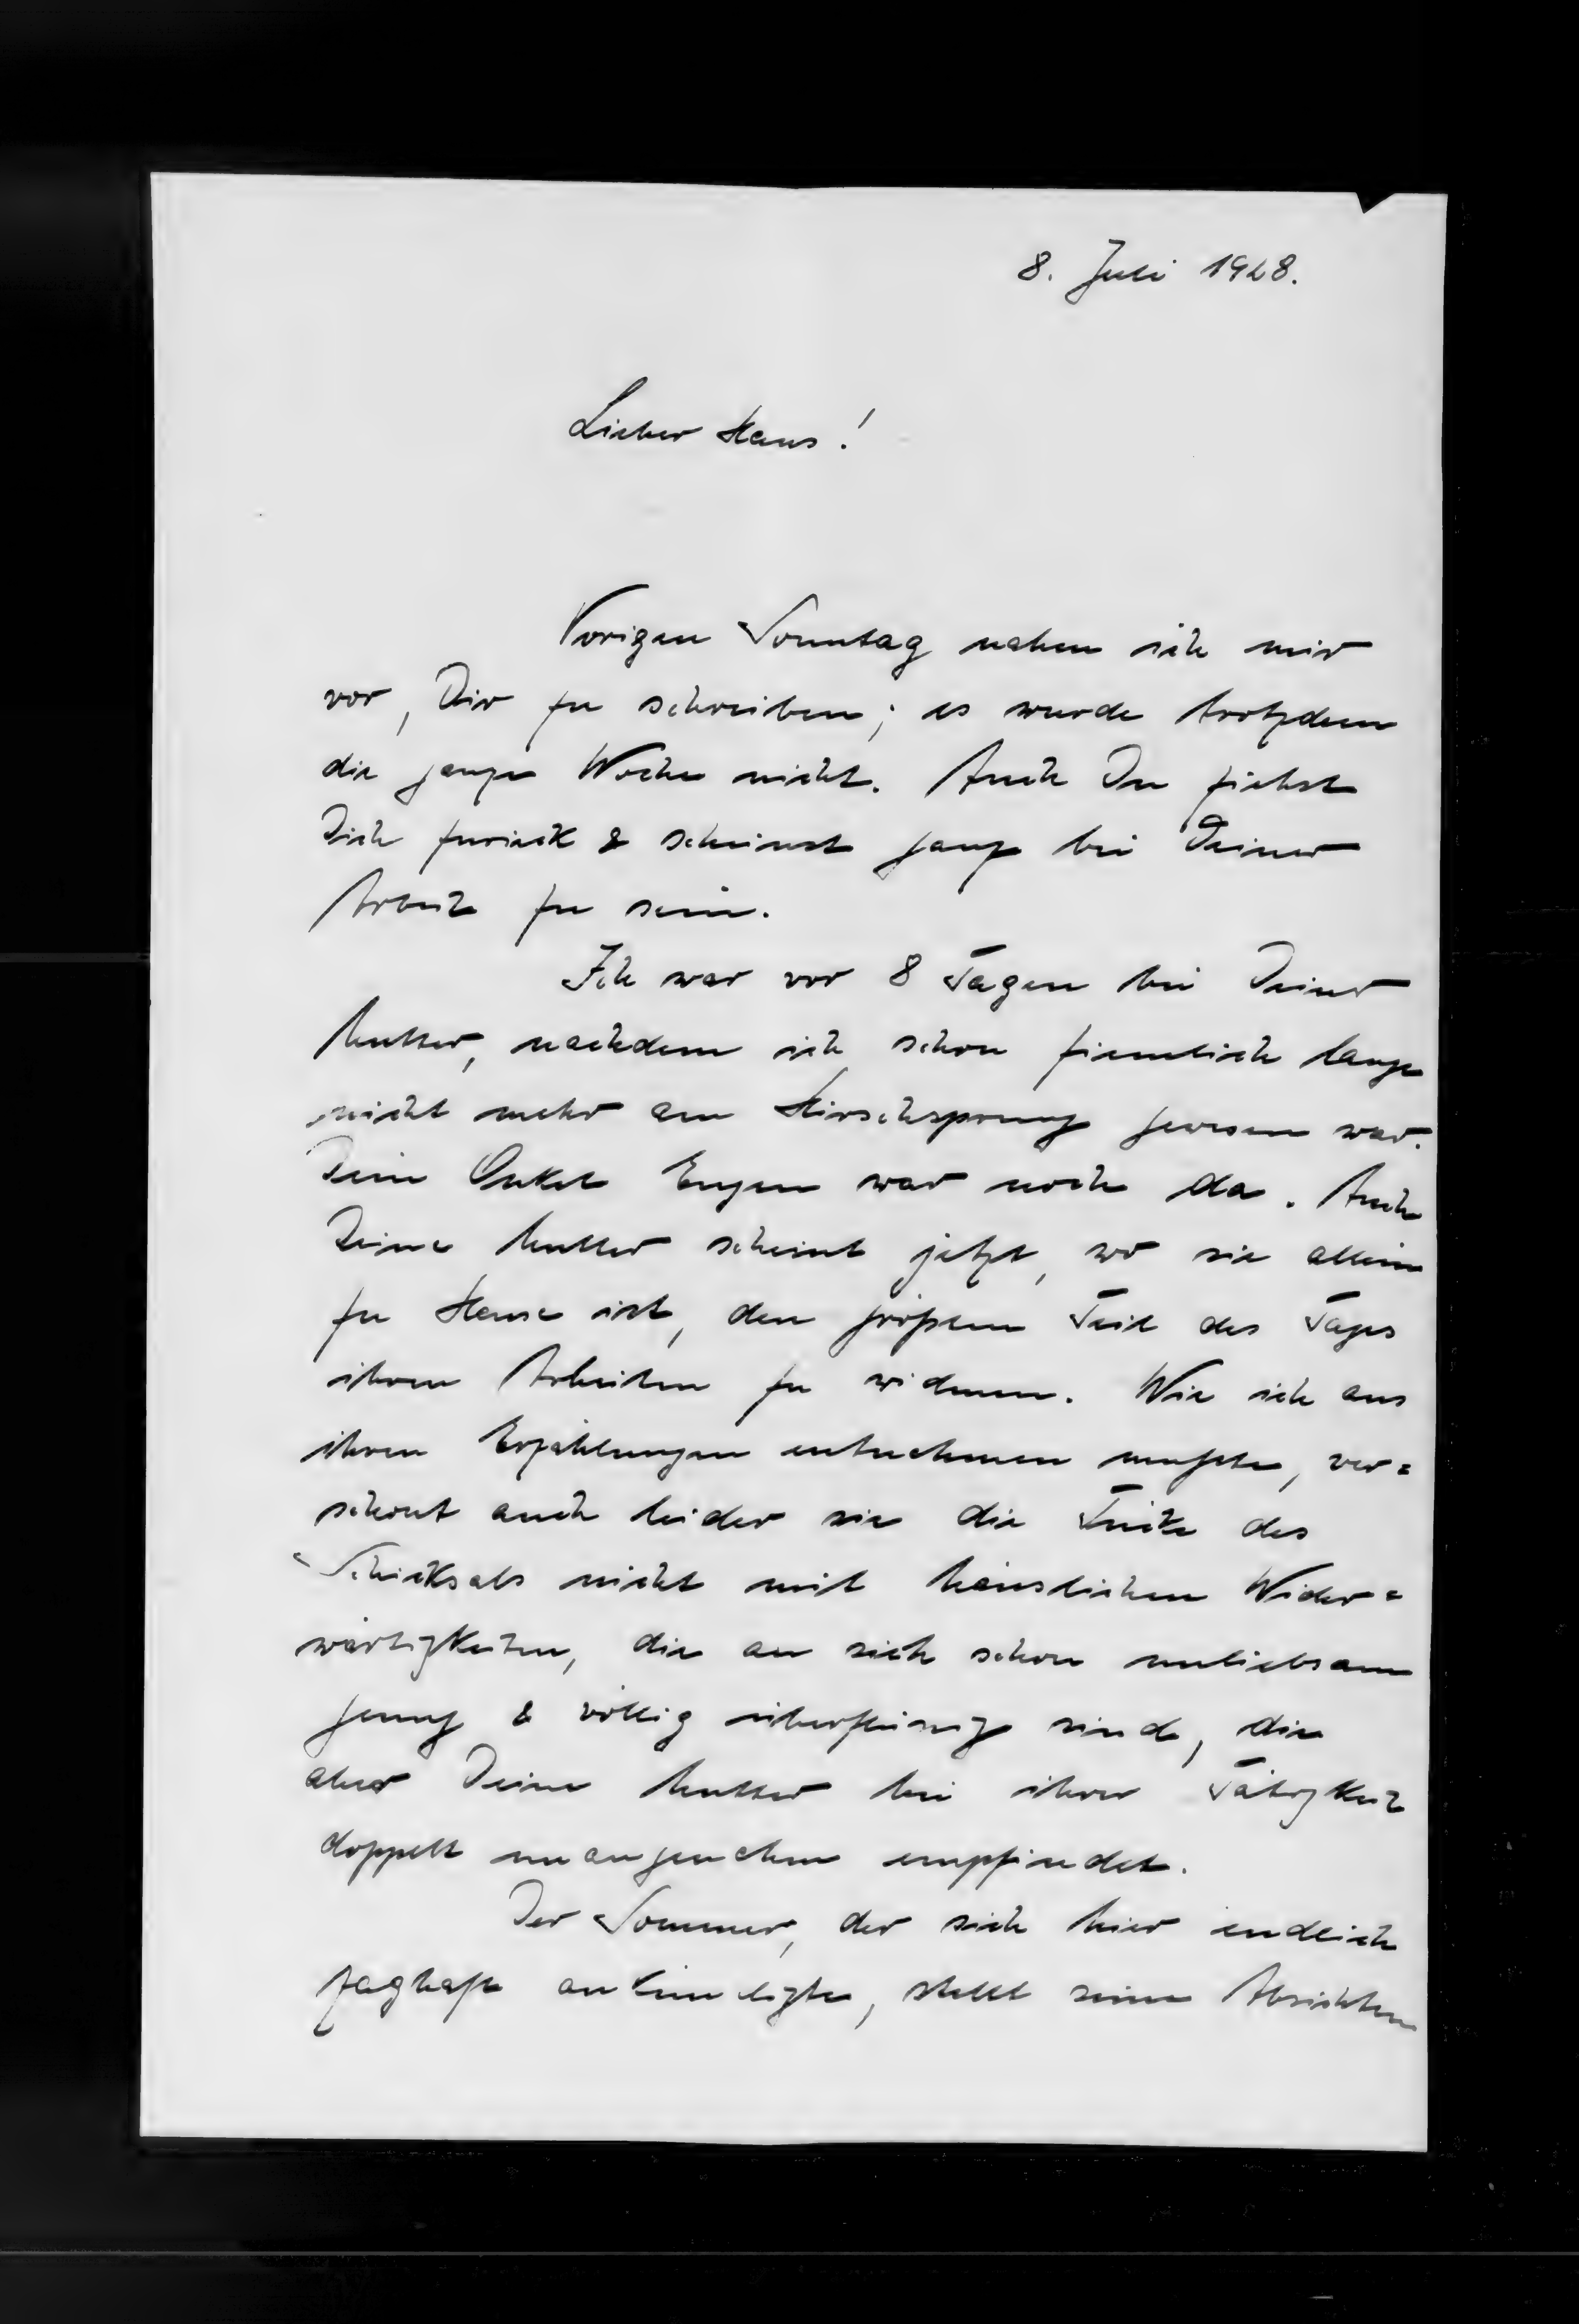 8. Juli 1928.
Lieber Hans!
Vorigen Sonntag nahm ich mir
vor, Dir zu schreiben; es wurde trotzdem
die ganze Woche nicht. Auch Du ziehst
Dich zurück & scheinst ganz bei Deiner
Arbeit zu sein.
Ich war vor 8 Tagen bei Deiner
Mutter, nachdem ich schon ziemlich lange
nicht mehr am Hirschsprung gewesen war.
Dein Onkel Eugen war noch da. Auch
Deine Mutter scheint jetzt, wo sie allein
zu Hause ist, den größern Teil des Tages
ihren Arbeiten zu widmen. Wie ich aus
ihren Erzählungen entnehmen mußte, ver=
schont auch leider sie die Tücke des
Schicksals nicht mit häuslichen Wider=
wärtigkeiten, die an sich schon unliebsam
genug & völlig überflüssig sind, die
aber Deine Mutter bei ihrer Tätigkeit
doppelt unangenehm empfindet.
Der Sommer, der sich hier endlich
zaghaft ankündigte, stellt seine Absichten